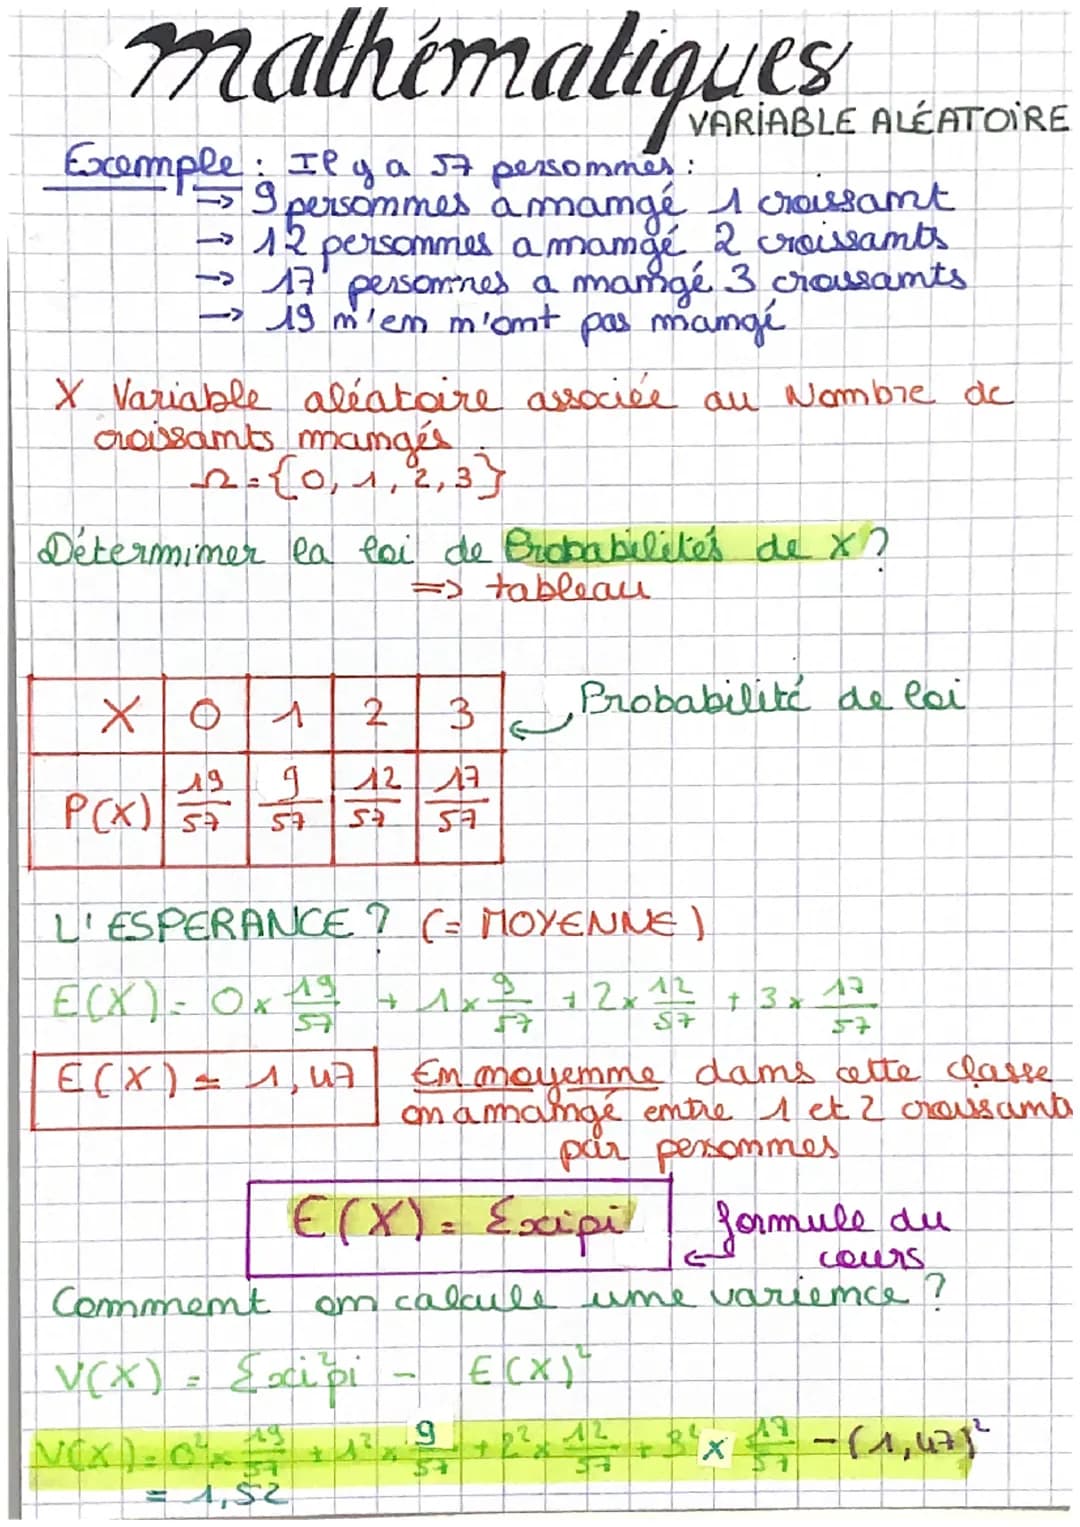 mathématiques
VARIABLE ALÉATOIRE
Exemple : Il y a 57 personnes :
→ 9 personnes a mangé 1 croissant
→ 12 personnes a mangé 2 croissants
→ 17 personnes a mangé 3 croissants
→ 19 n'en n'ont pas mangé
X Variable aléatoire associée au Nombre de
croissants mangés.
Ω = {0, 1, 2, 3}
Déterminer la loi de Probabilités de X ?
=> tableau
X 0 1 2 3
Probabilité de loi
P(X) 19/57 9/57 12/57 17/57
L'ESPERANCE ? (= MOYENNE)
E(X) = 0 x 19/57 + 1 x 9/57 + 2 x 12/57 + 3 x 17/57
E(X) = 1,47
En moyenne dans cette classe
on a mangé entre 1 et 2 croissants
par personnes
E(X) = Σxipi
formule du
cours
Comment on calcule une varience ?
V(X) = Σxi²pi - E(X)²
V(X) = 0² x 19/57 + 1² x 9/57 + 2² x 12/57 + 3² x 17/57 - (1,47)²
= 1,52